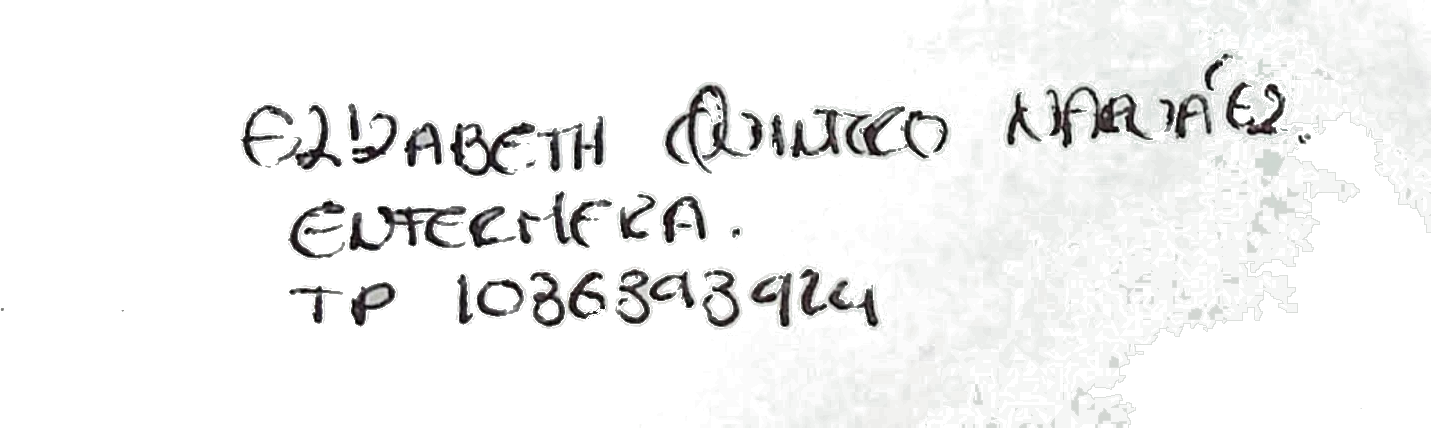 ELIZABETH QUINTERO NARVÁEZ.
ENFERMERA.
TP 1036393924